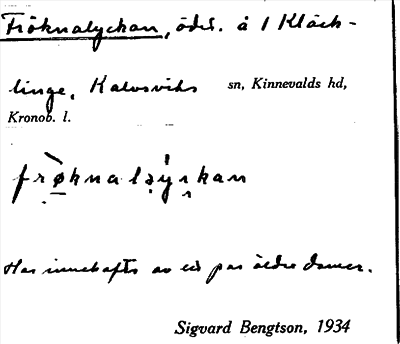 Fröknalyckan, öde. å 1 Kläck-
linge, Kalvsviks sn, Kinnevalds hd,
Kronob. l.
frø̀knaləýckan
Har innehafts av ett par äldre damer.
Sigvard Bengtson, 1934